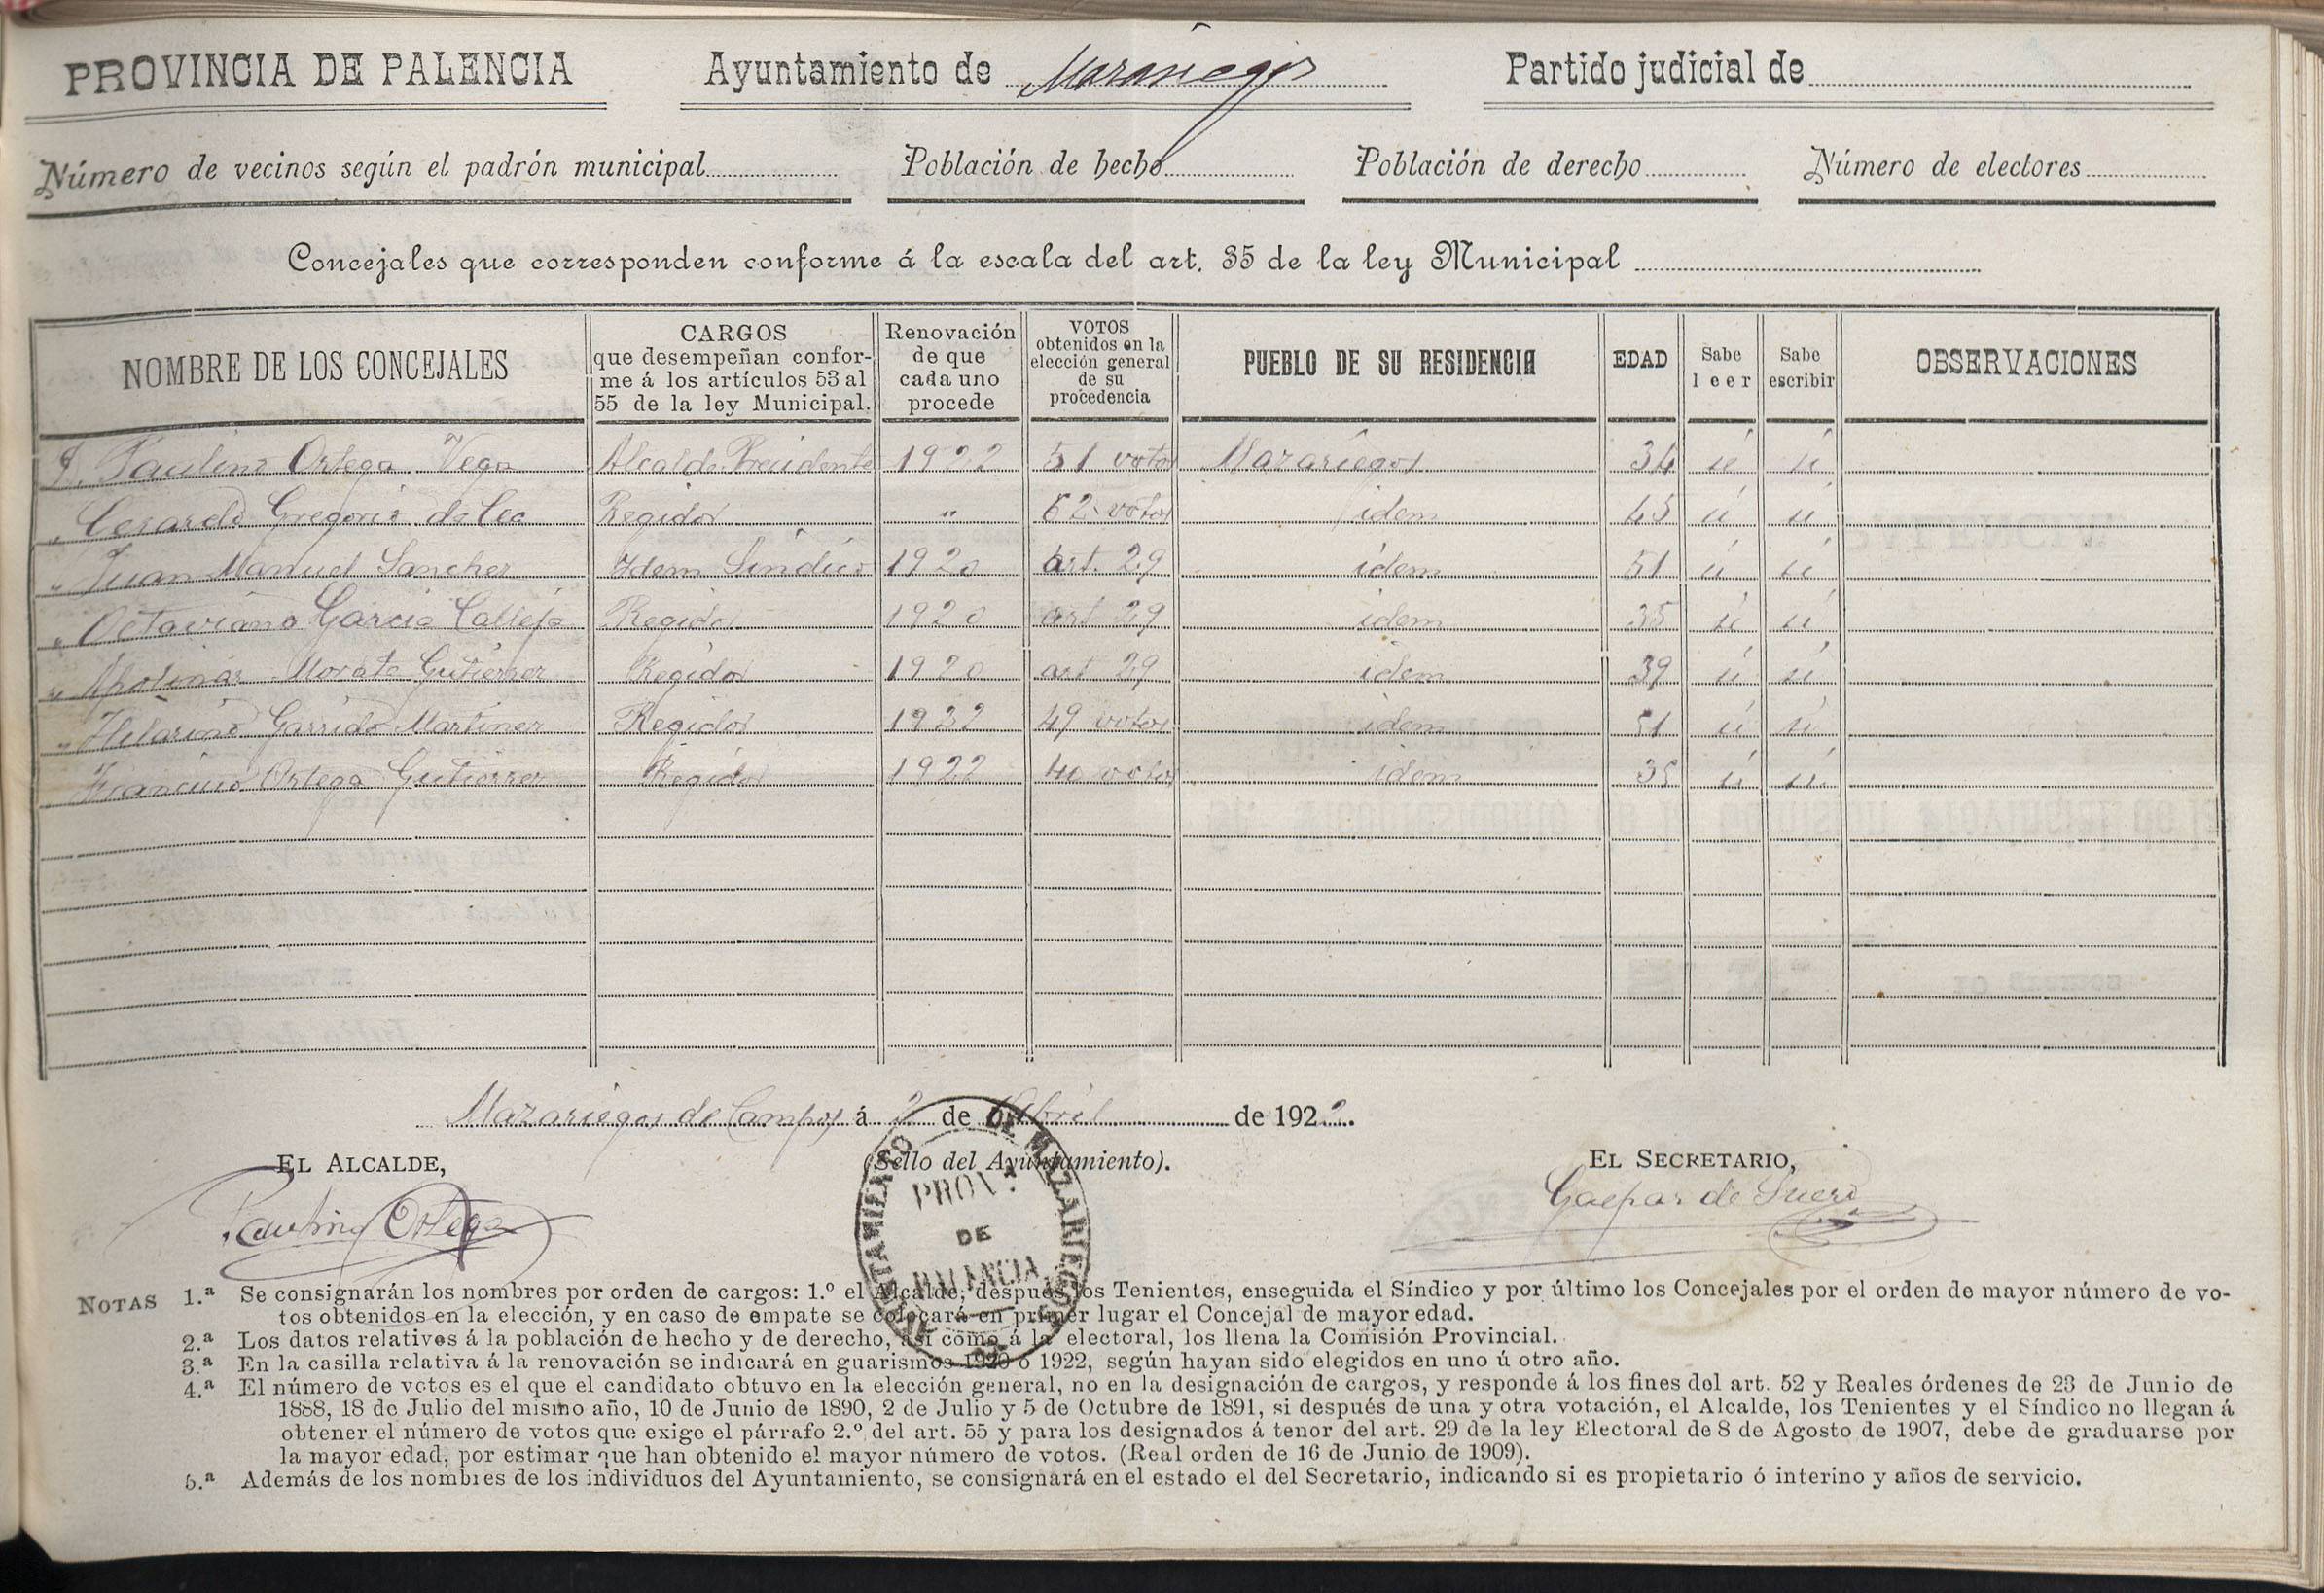 PROVINCIA DE PALENCIA Ayuntamiento de Mazariegos Partido judicial de
Número de vecinos según el padrón municipal Población de hecho Población de derecho Número de electores
Concejales que corresponden conforme á la escala del art. 35 de la ley Municipal
NOMBRE DE LOS CONCEJALES
CARGOS
que desempeñan confor-
me á los artículos 53 al
55 de la ley Municipal.
Renovación
de que
cada uno
procede
VOTOS
obtenidos en la
elección general
de su
procedencia
PUEBLO DE SU RESIDENCIA
EDAD
Sabe
leer
Sabe
escribir
OBSERVACIONES
D. Paulino Ortega Vega Alcalde Presidente 1922 51 votos Mazariegos 34 si si
„ Cesareo Gregorio de Cea Regidor " 62 votos idem 45 si si
„ Juan Manuel Sanchez Idem Sindico 1920 art. 29 idem 51 si si
„ Octaviano Garcia Calleja Regidor 1920 art 29 idem 35 si si
„ Apolinar Morate Gutierrez Regidor 1920 art 29 idem 39 si si
„ Hilarino Garrido Martinez Regidor 1922 49 votos idem 51 si si
Francisco Ortega Gutierrez Regidor 1922 40 votos idem 35 si si
Mazariegos de Campos á 2 de Abril de 1922.
EL ALCALDE,
(Sello del Ayuntamiento).
EL SECRETARIO,
Paulino Ortega
Gaspar de
AYUNTAMIENTO DE MAZARIEGOS
PROV.ª
DE
PALENCIA
NOTAS 1.ª Se consignarán los nombres por orden de cargos: 1.º el Alcalde, después los Tenientes, enseguida el Síndico y por último los Concejales por el orden de mayor número de vo-
tos obtenidos en la elección, y en caso de empate se colocará en primer lugar el Concejal de mayor edad.
2.ª Los datos relativos á la población de hecho y de derecho, así como á la electoral, los llena la Comisión Provincial.
3.ª En la casilla relativa á la renovación se indicará en guarismos 1920 ó 1922, según hayan sido elegidos en uno ú otro año.
4.ª El número de votos es el que el candidato obtuvo en la elección general, no en la designación de cargos, y responde á los fines del art. 52 y Reales órdenes de 23 de Junio de
1888, 18 de Julio del mismo año, 10 de Junio de 1890, 2 de Julio y 5 de Octubre de 1891, si después de una y otra votación, el Alcalde, los Tenientes y el Síndico no llegan á
obtener el número de votos que exige el párrafo 2.º del art. 55 y para los designados á tenor del art. 29 de la ley Electoral de 8 de Agosto de 1907, debe de graduarse por
la mayor edad, por estimar que han obtenido el mayor número de votos. (Real orden de 16 de Junio de 1909).
5.ª Además de los nombres de los individuos del Ayuntamiento, se consignará en el estado el del Secretario, indicando si es propietario ó interino y años de servicio.